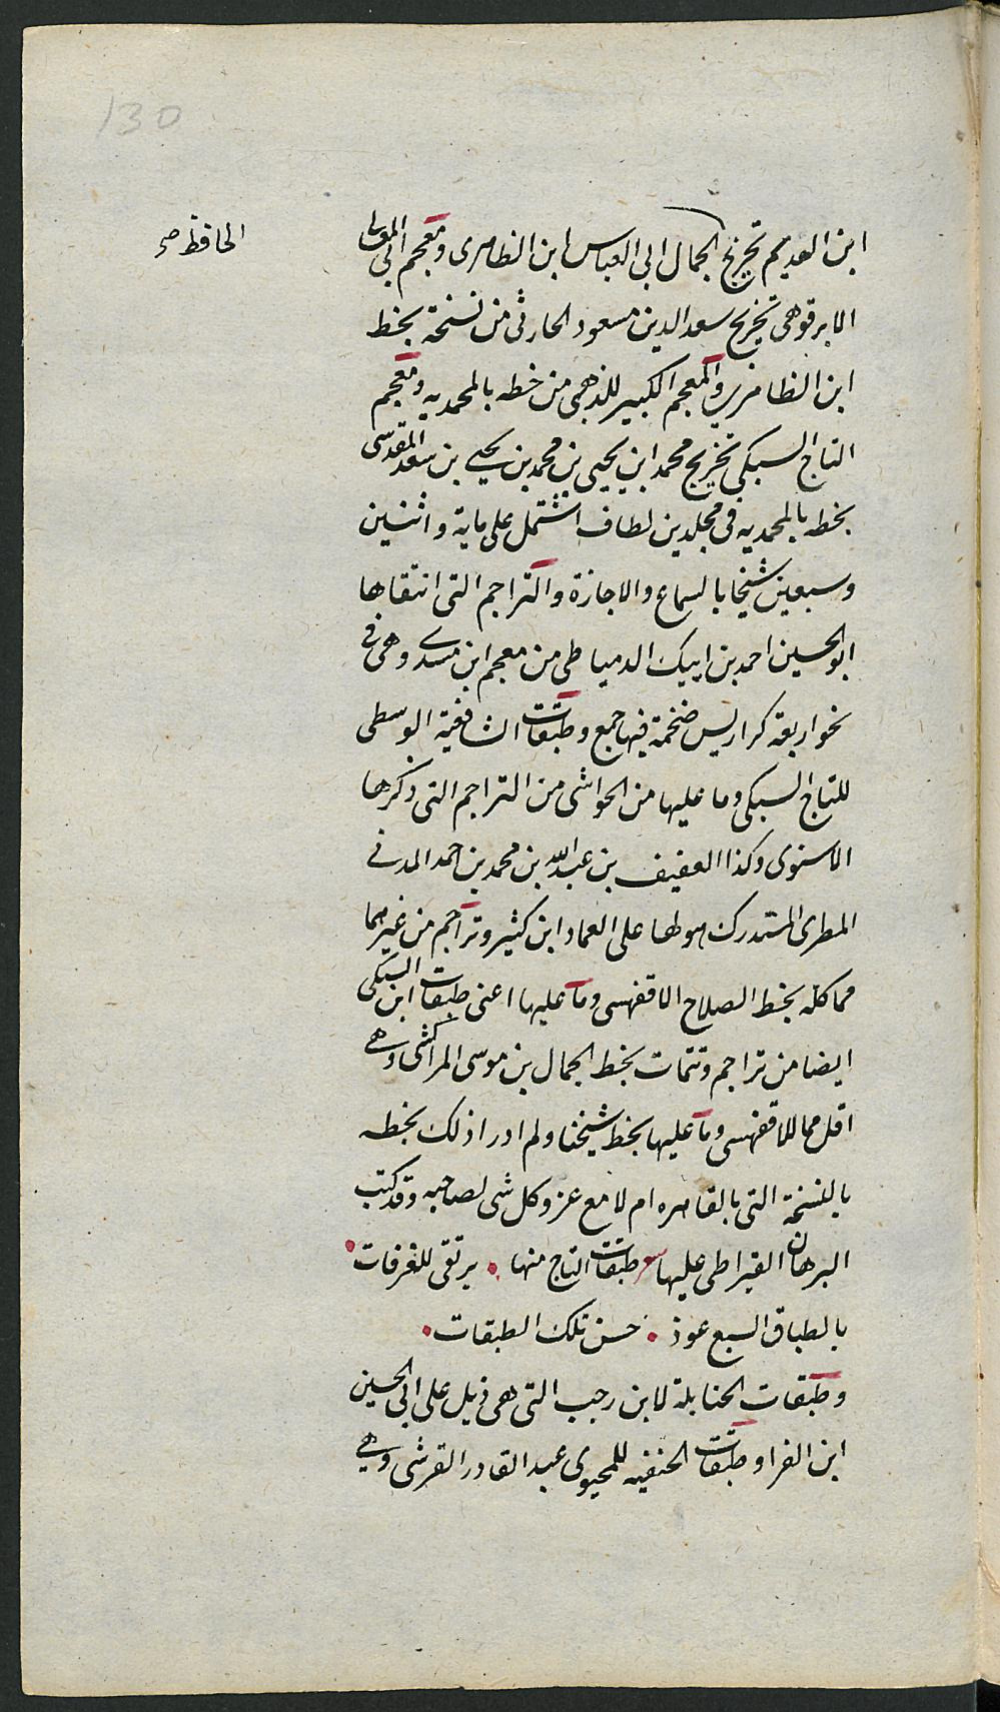 130
الحافظ صح
ابن العديم تخريج الجمال ابى العباس ابن الظاهرى ومعجم ابى المعالى
الابرقوهى تخريج سعد الدين مسعود الحارثى من نسخة بخط
ابن الظاهرى والمعجم الكبير للذهبى من خطه بالمحمديه ومعجم
التاج السبكى تخريج محمد ابن يحيى بن محمد بن يحيى بن سعد المقدسى
بخطه بالمحمديه فى مجلدين لطاف اشتمل على ماية واثنين
وسبعين شيخا بالسماع والاجازة والتراجم التى انتقاها
ابو الحسين احمد بن ايبك الدمياطى من معجم ابن مسدى وهى فى
نحو اربعة كراريس ضخمة فيها جمع وطبقات الشافعية الوسطى
للتاج السبكى وما عليها من الحواشى من التراجم التى ذكرها
الاسنوى وكذا العفيف بن عبد الله بن محمد بن احمد المدنى
المطرى المستدرك لها على العماد ابن كثير وتراجم من غيرهما
مما كله بخط الصلاح الاقفهسى وما عليها اعنى طبقات ابن السبكى
ايضا من تراجم وتتمات بخط الجمال بن موسى المراكشى وهى
اقل مما للاقفهسى وما عليها بخط شيخنا ولم ادر اذلك بخطه
بالنسخة التى بالقاهره ام لا مع عزو كل شى لصاحبه وقد كتب
البرهان القيراطى عليها شعر طبقات التاج منها . يرتقى للغرفات .
بالطباق السبع عوذ . حسن تلك الطبقات .
وطبقات الحنابلة لابن رجب التى هى ذيل على ابى الحسين
ابن الفرا وطبقات الحنفيه للمحيوى عبد القادر القرشى وهى